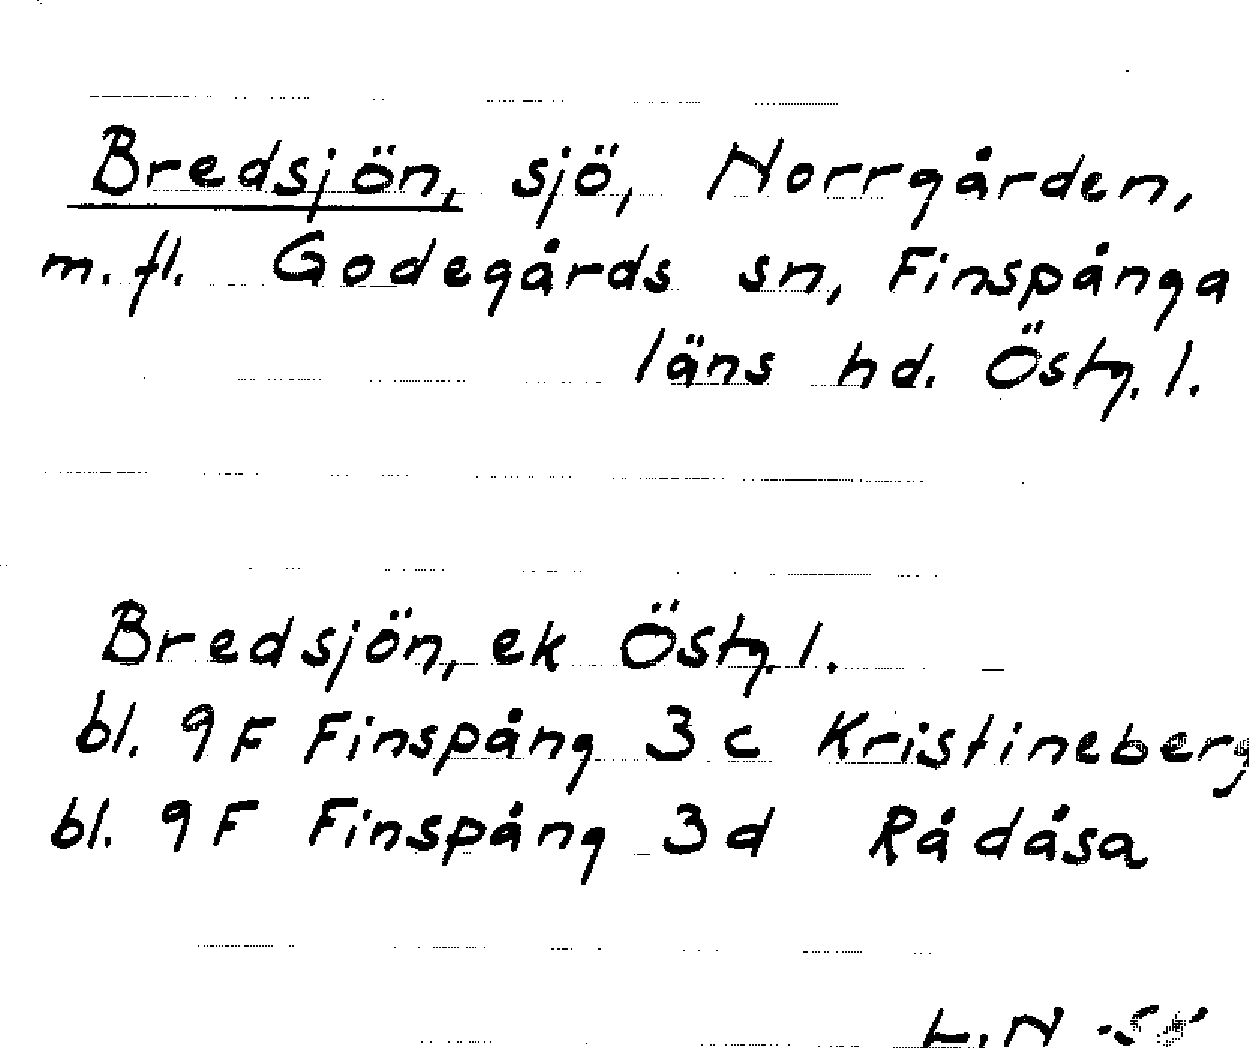 Bredsjön, sjö, Norrgården,
m.fl. Godegårds sn, Finspånga
läns hd. Östg.l.
Bredsjön, ek Östg.l.
bl. 9F Finspång 3c Kristineberg
bl. 9F Finspång 3d Rådåsa